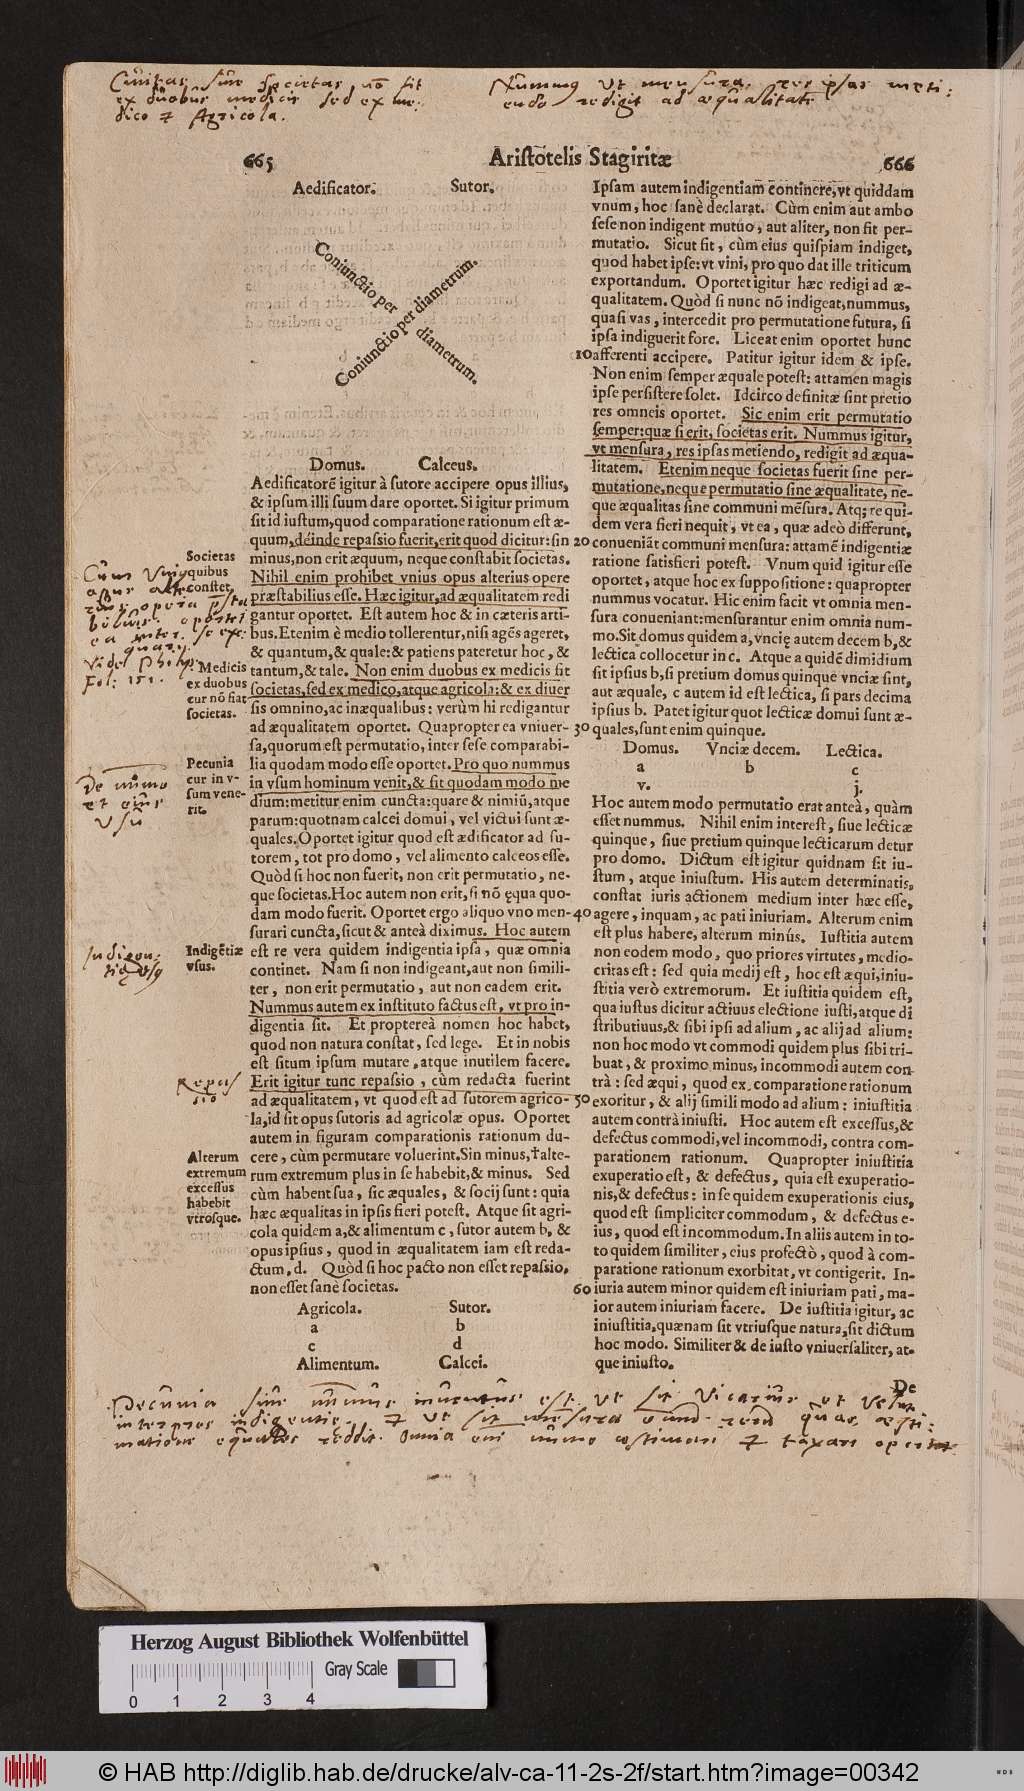 Ciuitas siue societas nō fit
ex duobus medicis sed ex me:
dico & Agricola.
Nummus vt mensura, res ipsas meti:
endo redigit ad æqualitatē
665
Aristotelis Stagiritæ
666
Aedificator.
Sutor.
Coniunctio per diametrum.
Coniunctio per diametrum.
Domus.
Calceus.
Aedificatorē igitur à sutore accipere opus illius,
& ipsum illi suum dare oportet. Si igitur primum
sit id iustum, quod comparatione rationum est æ-
quum, deinde repassio fuerit, erit quod dicitur: sin
minus, non erit æquum, neque constabit societas.
Nihil enim prohibet vnius opus alterius opere
præstabilius esse. Hæc igitur, ad æqualitatem redi
gantur oportet. Est autem hoc & in cæteris arti-
bus. Etenim è medio tollerentur, nisi agēs ageret,
& quantum, & quale: & patiens pateretur hoc, &
tantum, & tale. Non enim duobus ex medicis fit
societas, sed ex medico, atque agricola: & ex diuer
sis omnino, ac inæqualibus: verùm hi redigantur
ad æqualitatem oportet. Quapropter ea vniuer-
sa, quorum est permutatio, inter sese comparabi-
lia quodam modo esse oportet. Pro quo nummus
in vsum hominum venit, & fit quodam modo me
dium: metitur enim cuncta: quare & nimiū, atque
parum: quotnam calcei domui, vel victui sunt æ-
quales. Oportet igitur quod est ædificator ad su-
torem, tot pro domo, vel alimento calceos esse.
Quòd si hoc non fuerit, non erit permutatio, ne-
que societas. Hoc autem non erit, si nō ęqua quo-
dam modo fuerit. Oportet ergo aliquo vno men-
surari cuncta, sicut & anteà diximus. Hoc autem
est re vera quidem indigentia ipsa, quæ omnia
continet. Nam si non indigeant, aut non simili-
ter, non erit permutatio, aut non eadem erit.
Nummus autem ex instituto factus est, vt pro in-
digentia sit. Et proptereà nomen hoc habet,
quod non natura constat, sed lege. Et in nobis
est situm ipsum mutare, atque inutilem facere.
Erit igitur tunc repassio, cùm redacta fuerint
ad æqualitatem, vt quod est ad sutorem agrico-
la, id sit opus sutoris ad agricolæ opus. Oportet
autem in figuram comparationis rationum du-
cere, cùm permutare voluerint. Sin minus, †alte-
rum extremum plus in se habebit, & minus. Sed
cùm habent sua, sic æquales, & socij sunt: quia
hæc æqualitas in ipsis fieri potest. Atque sit agri-
cola quidem a, & alimentum c, sutor autem b, &
opus ipsius, quod in æqualitatem iam est reda-
ctum, d. Quòd si hoc pacto non esset repassio,
non esset sanè societas.
Agricola. Sutor.
a b
c d
Alimentum. Calcei.
Societas
quibus
constet.
Medicis
ex duobus
cur nō fiat
societas.
Pecunia
cur in v-
sum vene-
rit.
Indigētiæ
vsus.
Alterum
extremum
excessus
habebit
vtrosque.
opera
Vide Philip.
Fol: 151.
De nūmo
et eius
vsu
Indigen-
tię vsus
Repas
sio
Ipsam autem indigentiam continere, vt quiddam
vnum, hoc sanè declarat. Cùm enim aut ambo
sese non indigent mutuo, aut aliter, non fit per-
mutatio. Sicut fit, cùm eius quispiam indiget,
quod habet ipse: vt vini, pro quo dat ille triticum
exportandum. Oportet igitur hæc redigi ad æ-
qualitatem. Quòd si nunc nō indigeat, nummus,
quasi vas, intercedit pro permutatione futura, si
ipsa indiguerit fore. Liceat enim oportet hunc
10 afferenti accipere. Patitur igitur idem & ipse.
Non enim semper æquale potest: attamen magis
ipse persistere solet. Idcirco definitæ sint pretio
res omneis oportet. Sic enim erit permutatio
semper: quæ si erit, societas erit. Nummus igitur,
vt mensura, res ipsas metiendo, redigit ad æqua-
litatem. Etenim neque societas fuerit sine per-
mutatione, neque permutatio sine æqualitate, ne-
que æqualitas sine communi mēsura. Atq; re qui-
dem vera fieri nequit, vt ea, quæ adeò differunt,
20 conueniāt communi mensura: attamē indigentiæ
ratione satisfieri potest. Vnum quid igitur esse
oportet, atque hoc ex suppositione: quapropter
nummus vocatur. Hic enim facit vt omnia men-
sura conueniant: mensurantur enim omnia num-
mo. Sit domus quidem a, vncię autem decem b, &
lectica collocetur in c. Atque a quidē dimidium
sit ipsius b, si pretium domus quinque vnciæ sint,
aut æquale, c autem id est lectica, si pars decima
ipsius b. Patet igitur quot lecticæ domui sunt æ-
30 quales, sunt enim quinque.
Domus. Vnciæ decem. Lectica.
a b c
v. j.
Hoc autem modo permutatio erat anteà, quàm
esset nummus. Nihil enim interest, siue lecticæ
quinque, siue pretium quinque lecticarum detur
pro domo. Dictum est igitur quidnam sit iu-
stum, atque iniustum. His autem determinatis,
constat iuris actionem medium inter hæc esse,
40 agere, inquam, ac pati iniuriam. Alterum enim
est plus habere, alterum minùs. Iustitia autem
non eodem modo, quo priores virtutes, medio-
critas est: sed quia medij est, hoc est æqui, iniu-
stitia verò extremorum. Et iustitia quidem est,
qua iustus dicitur actiuus electione iusti, atque di
stributiuus, & sibi ipsi ad alium, ac alij ad alium:
non hoc modo vt commodi quidem plus sibi tri-
buat, & proximo minus, incommodi autem con
trà: sed æqui, quod ex comparatione rationum
50 exoritur, & alij simili modo ad alium: iniustitia
autem contrà iniusti. Hoc autem est excessus, &
defectus commodi, vel incommodi, contra com-
parationem rationum. Quapropter iniustitia
exuperatio est, & defectus, quia est exuperatio-
nis, & defectus: in se quidem exuperationis eius,
quod est simpliciter commodum, & defectus e-
ius, quod est incommodum. In aliis autem in to-
to quidem similiter, eius profectò, quod à com-
paratione rationum exorbitat, vt contigerit. In-
60 iuria autem minor quidem est iniuriam pati, ma-
ior autem iniuriam facere. De iustitia igitur, ac
iniustitia, quænam sit vtriusque natura, sit dictum
hoc modo. Similiter & de iusto vniuersaliter, at-
que iniusto.
De
Pecunia siue nummus inuentus est vt sit vicarius et velut
interpres indigentię. & vt sit mensura omniū rerū quas æsti:
matione equales reddit. Omnia enī nūmo æstimari & taxari oportet
Herzog August Bibliothek Wolfenbüttel
Gray Scale
0 1 2 3 4
© HAB http://diglib.hab.de/drucke/alv-ca-11-2s-2f/start.htm?image=00342